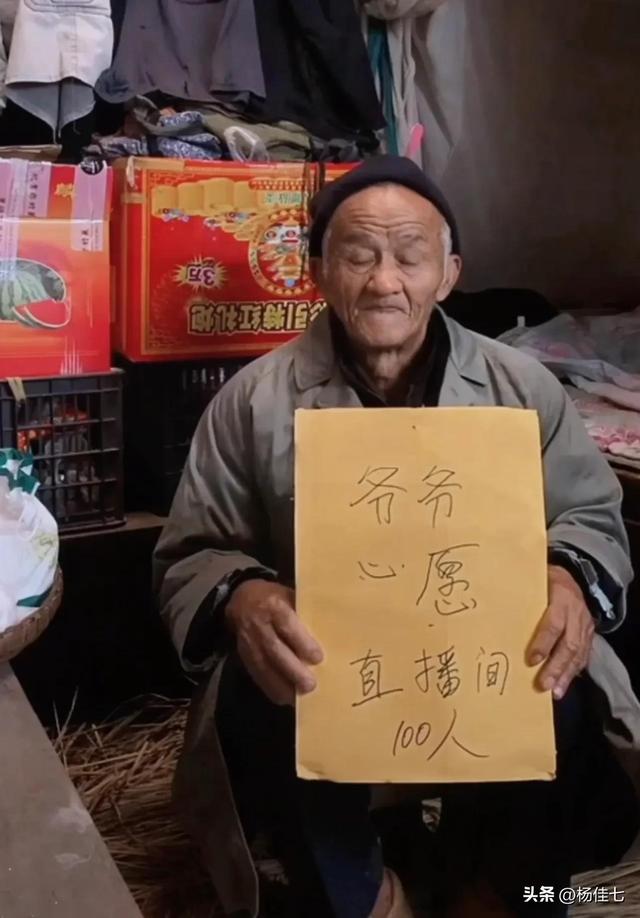 3万
爷爷
心愿
直播间
100人
头条 @杨佳七